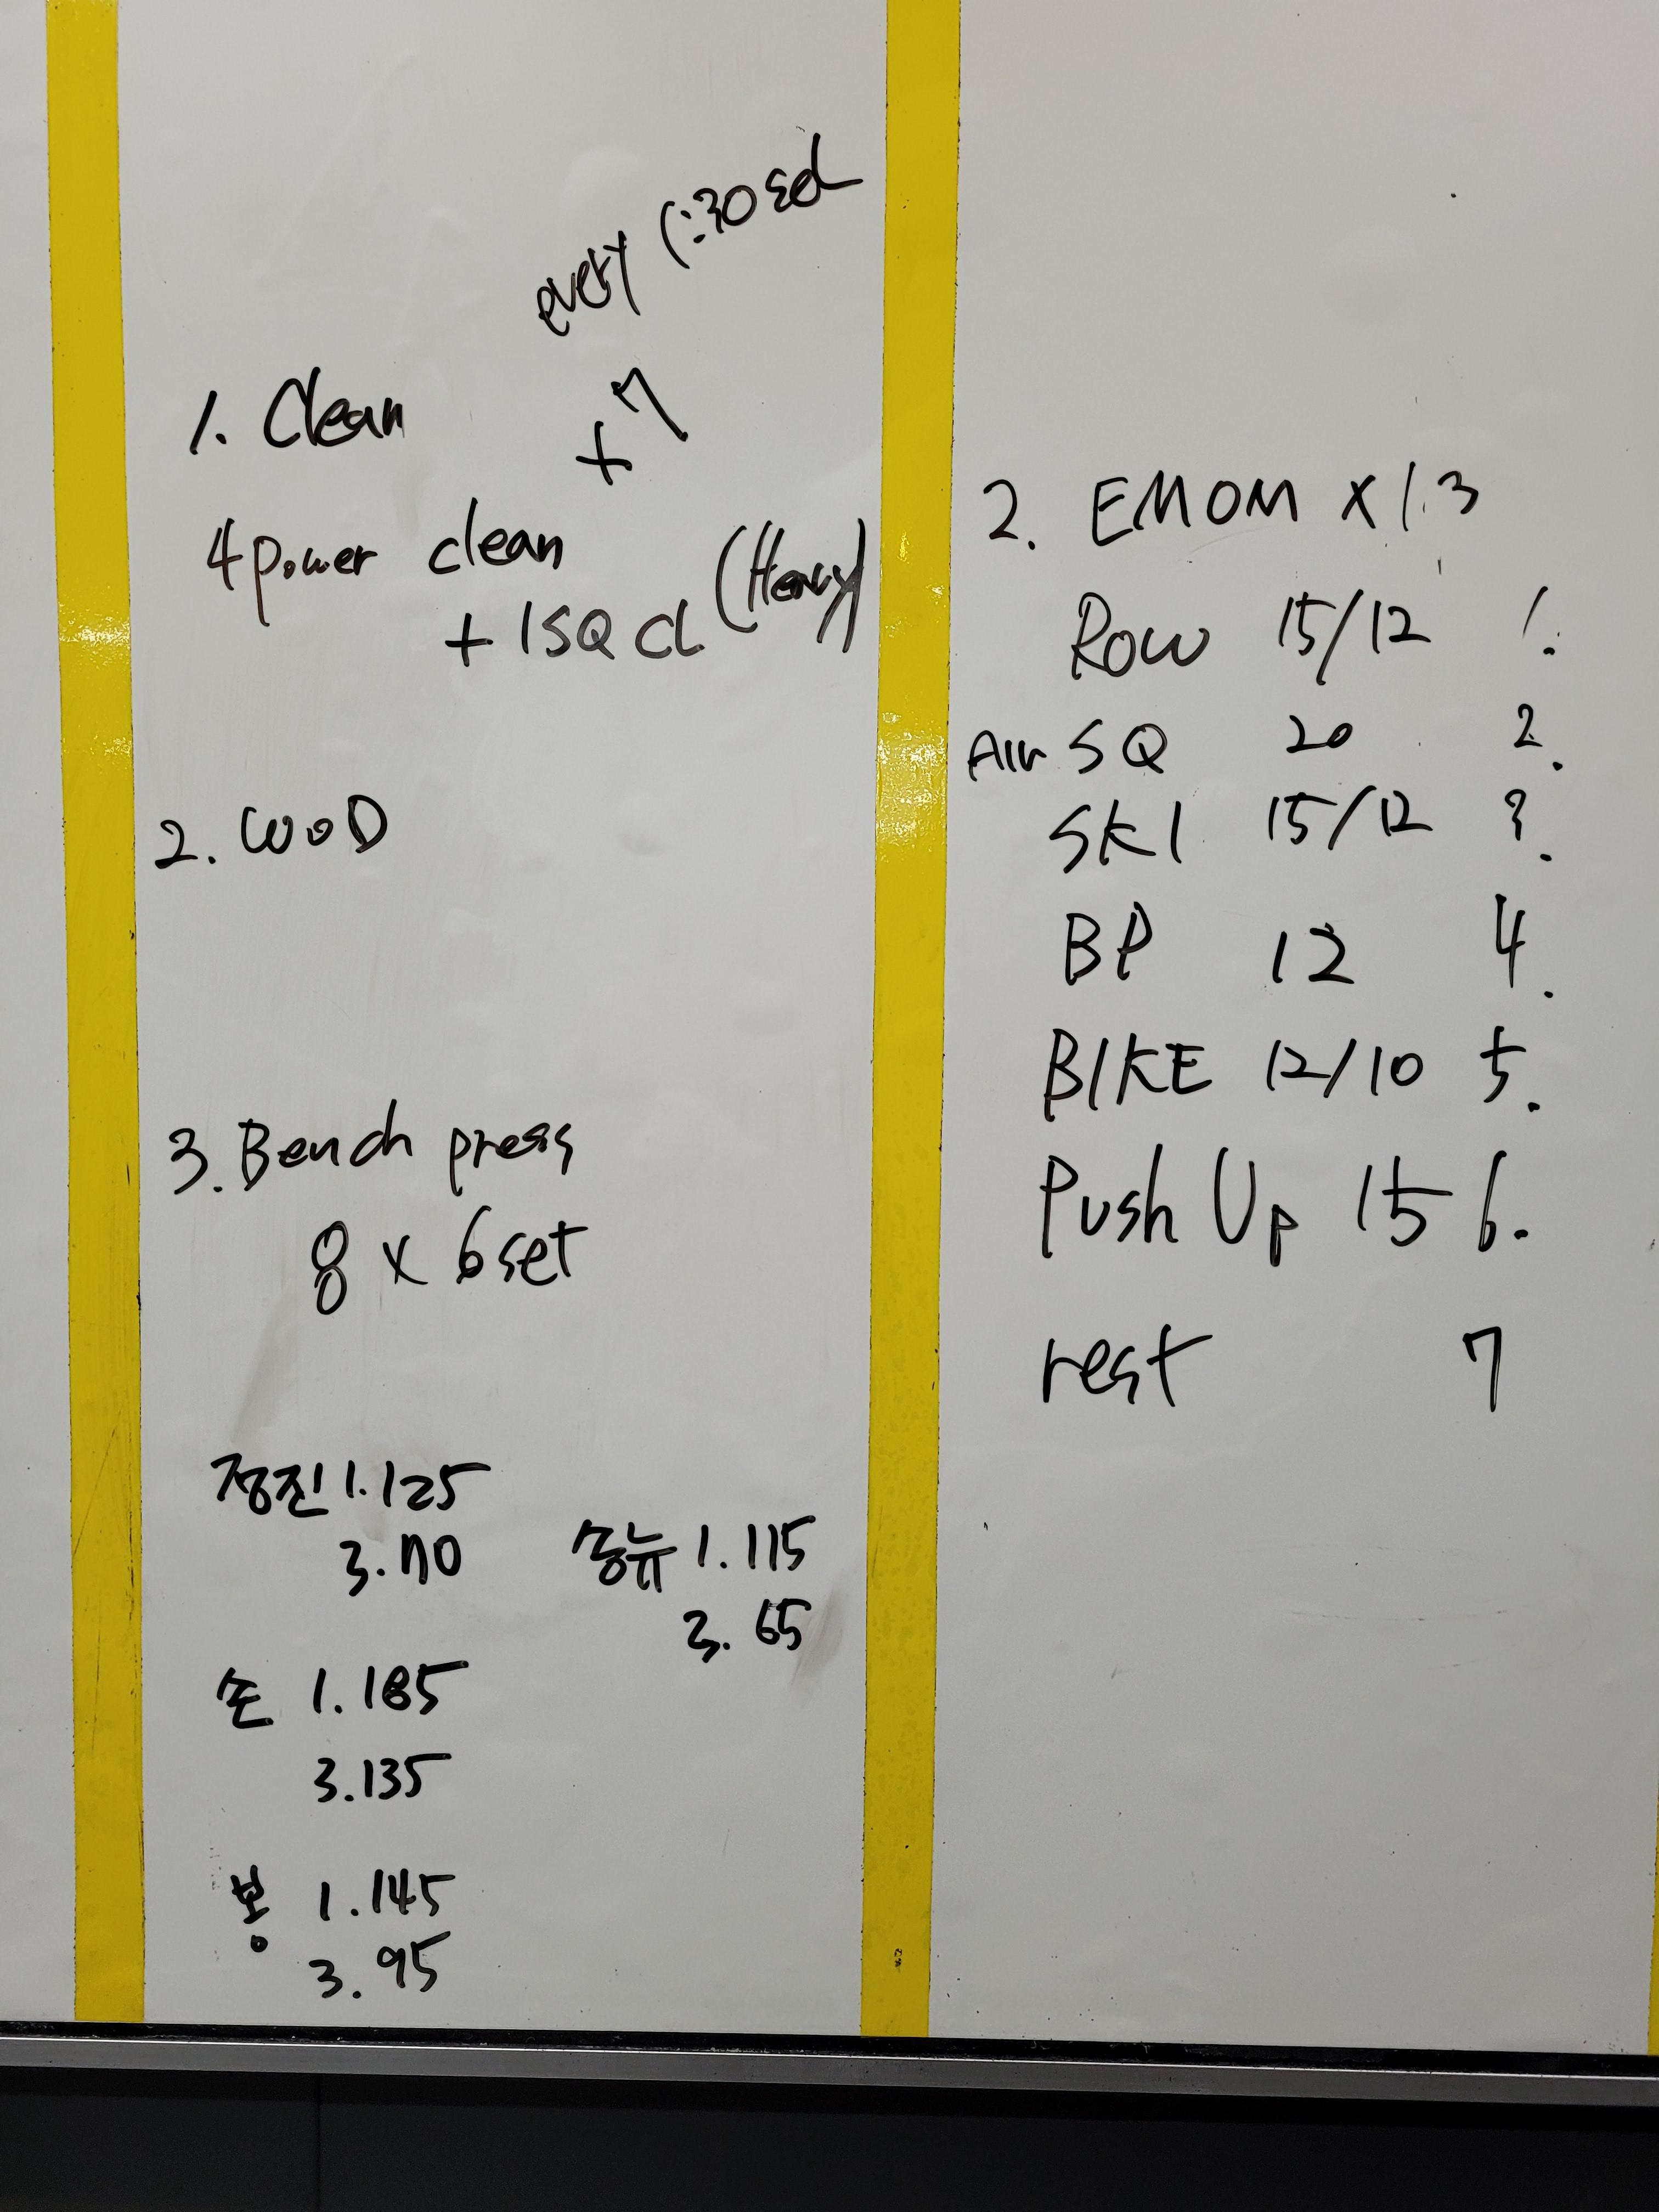 every 1:30 sec
1. Clean
+7
4 power clean
+ 1 SQ CL (Heavy)
2. WOD
3. Bench press
8 x 6 set
정진 1.125
3.70
송뉴 1.115
3. 65
손 1.185
3.135
봉 1.145
3. 95
2. EMOM x 13
Row 15/12 1.
Air SQ 20 2.
SKI 15/12 3.
BP 12 4.
BIKE 12/10 5.
Push Up 15 6.
rest 7